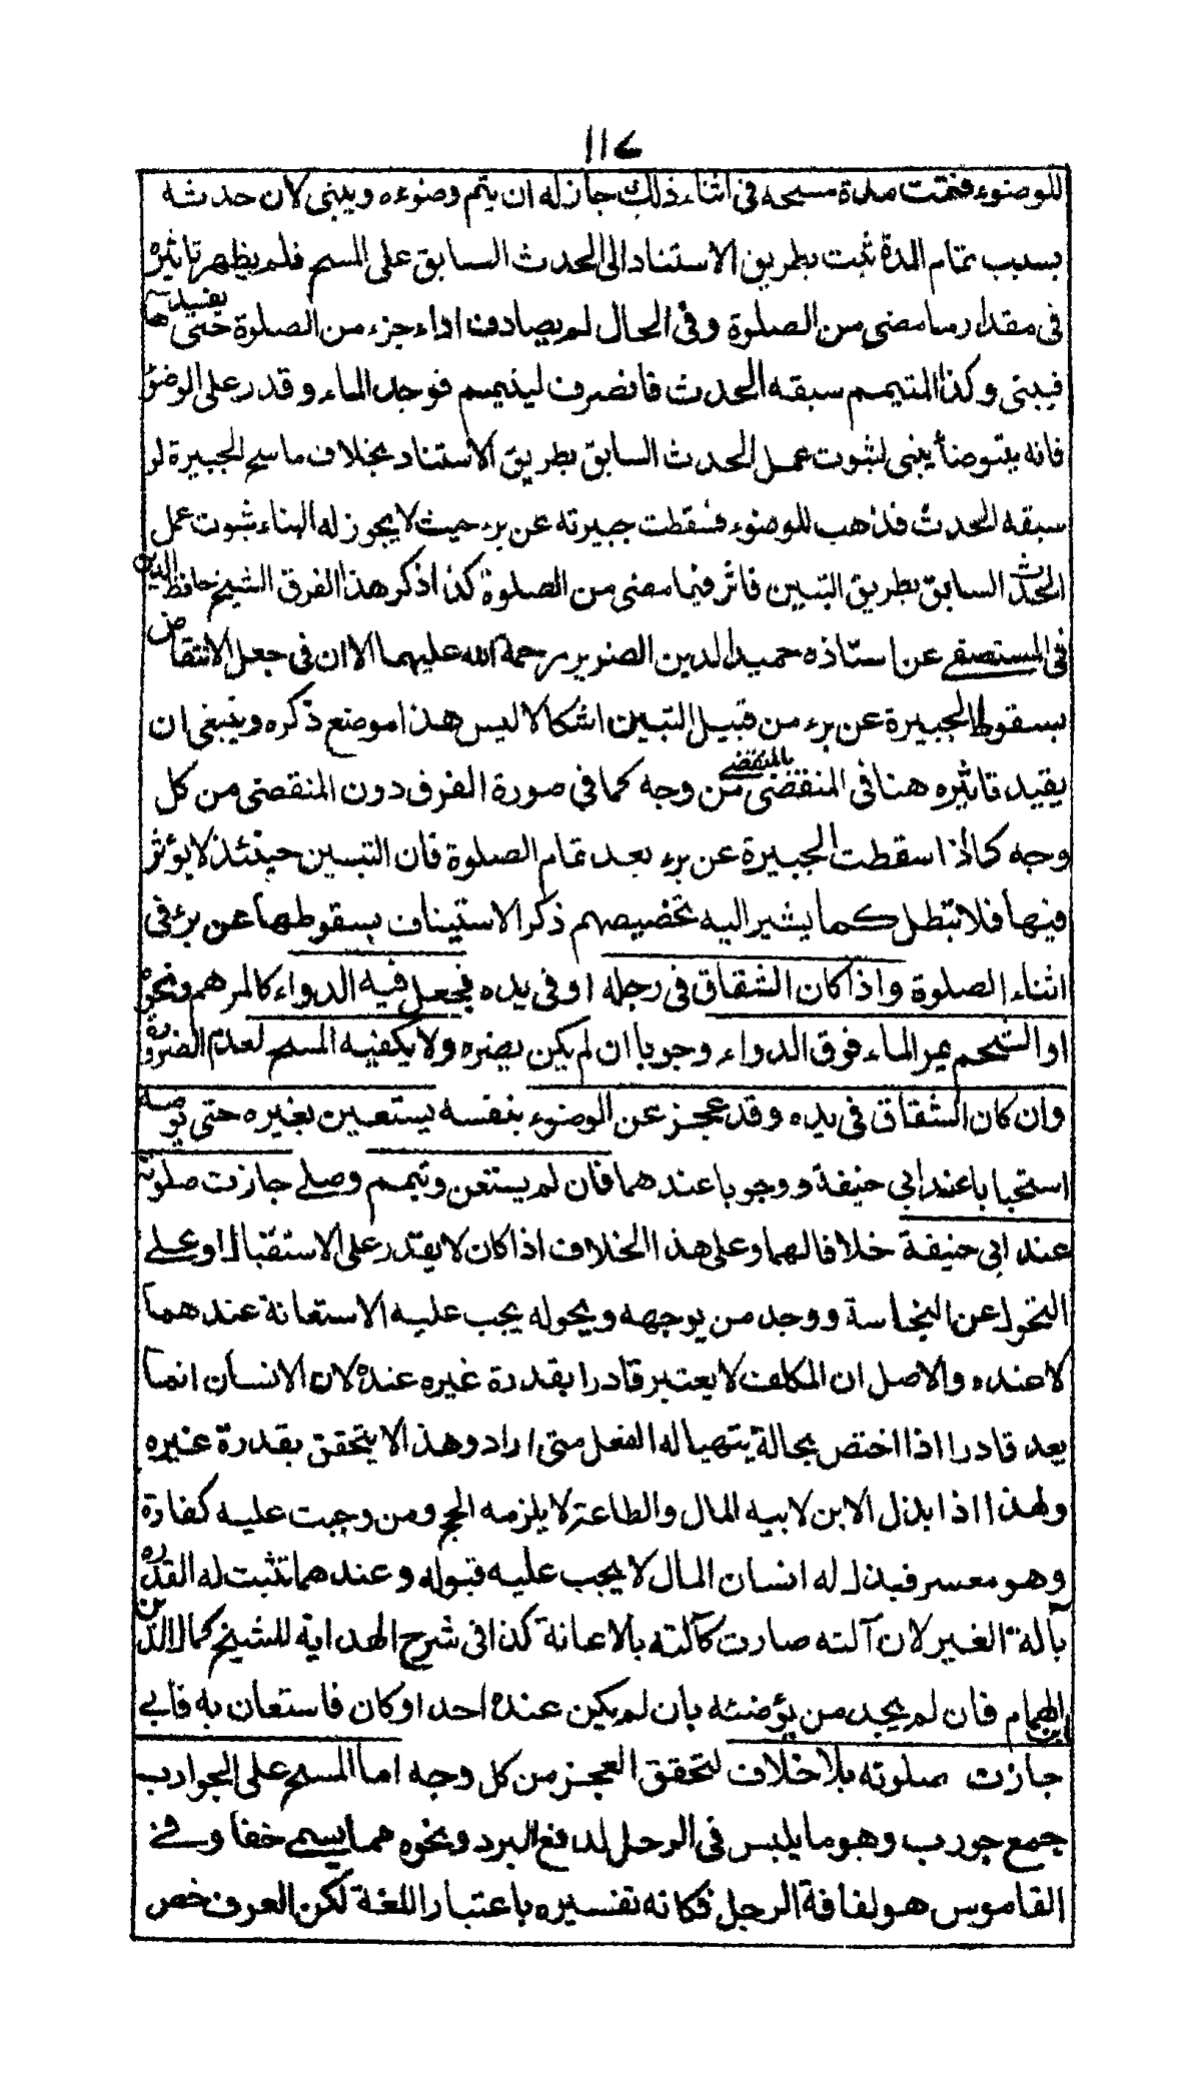 ١١٧
للوضوء فتمت مدة مسحه فى اثناء ذلك جاز له ان يتم وضوءه ويبنى لان حدثه
بسبب تمام المدة ثبت بطريق الاستناد الى الحدث السابق على المسح فلم يظهر تاثيره
فى مقدار ما مضى من الصلوة وفى الحال لم يصادف اداء جزء من الصلوة حتى يفسدها
فيبنى وكذا المتيمم سبقه الحدث فانصرف ليتيمم فوجد الماء وقدر على الوضؤ
فانه يتوضأ يبنى لثبوت عمل الحدث السابق بطريق الاستناد بخلاف ماسح الجبيرة لو
سبقه الحدث فذهب للوضوء فسقطت جبيرته عن برء حيث لا يجوز له البناء ثبوت عمل
الحدث السابق بطريق التبين فاثر فيما مضى من الصلوة كذا ذكر هذا الفرق الشيخ حافظ الدين
فى المستصفے عن استاذه حميد الدين الضرير رحمة الله عليهما الا ان فى جعل الانتقاض
بسقوط الجبيرة عن برء من قبيل التبين اشكالا ليس هذا موضع ذكره وينبغى ان
يقيد تاثيره هنا فى المنقضى بالمنقضے من وجه كما فى صورة الفرق دون المنقضى من كل
وجه كما اذا سقطت الجبيرة عن برء بعد تمام الصلوة فان التبين حينئذ لا يؤثر
فيها فلا تبطل كما يشير اليه تخصيصهم ذكر الاستيناف بسقوطها عن برء فى
اثناء الصلوة واذا كان الشقاق فى رجله او فى يده فجعل فيه الدواء كالمرهم ونحوه
او الشحم يمر الماء فوق الدواء وجوبا ان لم يكن يضره ولا يكفيه المسح لعدم الضرورة
وان كان الشقاق فى يده وقد عجز عن الوضوء بنفسه يستعين بغيره حتى يوضيه
استحبابا عند ابي حنيفة ووجوبا عندهما فان لم يستعن وتيمم وصلے جازت صلوته
عند ابى حنيفة خلافا لهما وعلى هذا الخلاف اذا كان لا يقدر على الاستقبال او علے
التحول عن النجاسة ووجد من يوجهه ويحوله يجب عليه الاستعانة عندهما
لا عنده والاصل ان المكلف لا يعتبر قادرا بقدرة غيره عنده لان الانسان انما
يعد قادرا اذا اختص بحالة يتهيا له الفعل متى اراد وهذا لا يتحقق بقدرة غيره
ولهذا اذا بذل الابن لابيه المال والطاعة لا يلزمه الحج ومن وجبت عليه كفارة
وهو معسر فبذل له انسان المال لا يجب عليه قبوله وعندهما تثبت له القدره
بآلة الغير لان آلته صارت كآلته بالاعانة كذا فى شرح الهداية للشيخ كمال الدين
ابن الهمام فان لم يجد من يؤضئه بان لم يكن عنده احد او كان فاستعان به فابے
جازت صلوته بلا خلاف لتحقق العجز من كل وجه اما المسح على الجوارب
جمع جورب وهو ما يلبس فى الرجل لدفع البرد ونحوه مما يسمے خفا وفے
القاموس هو لفافة الرجل فكانه تفسيره باعتبار اللغة لكن العرف خص